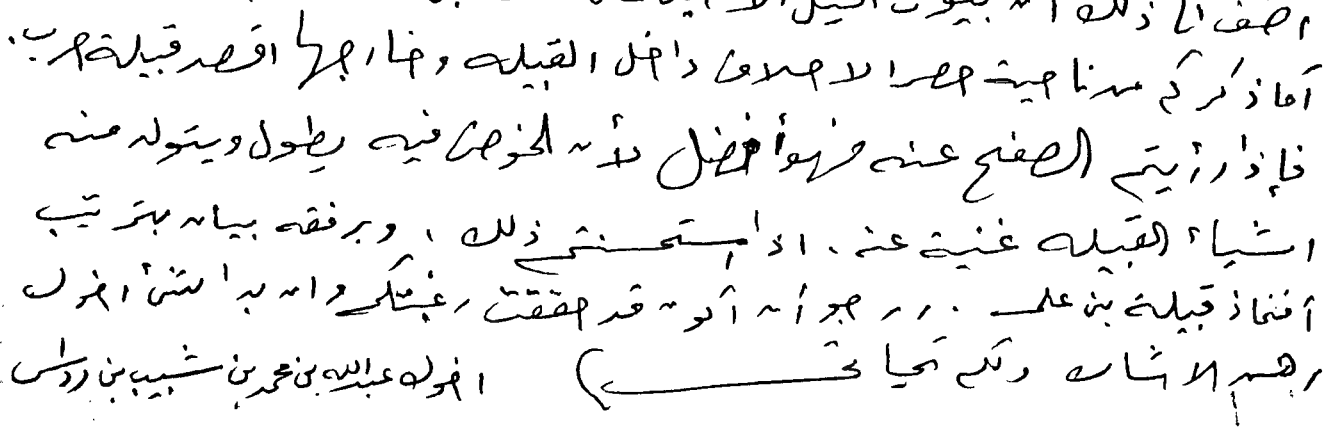 اضف الى ذلك ان بيوت
أما ذكركم من ناحية حصر الاحلاف داخل القبيله وخارجها اقصد قبيلة حرب.
فإذا رأيتم الصفح عنه فهو أفضل لأن الخوض فيه يطول ويتولد منه
اشياء القبيله غنية عنه. اذا استحسنتم ذلك، وبرفقه بيان بترتيب
أفخاذ قبيلة بني علي. ارجو أن أكون قد حققت رغبتكم وان بدا شئ اخوك
رهن الاشاره ولكم تحياتي) اخوك عبدالله بن محمد بن شبيب بن رداس